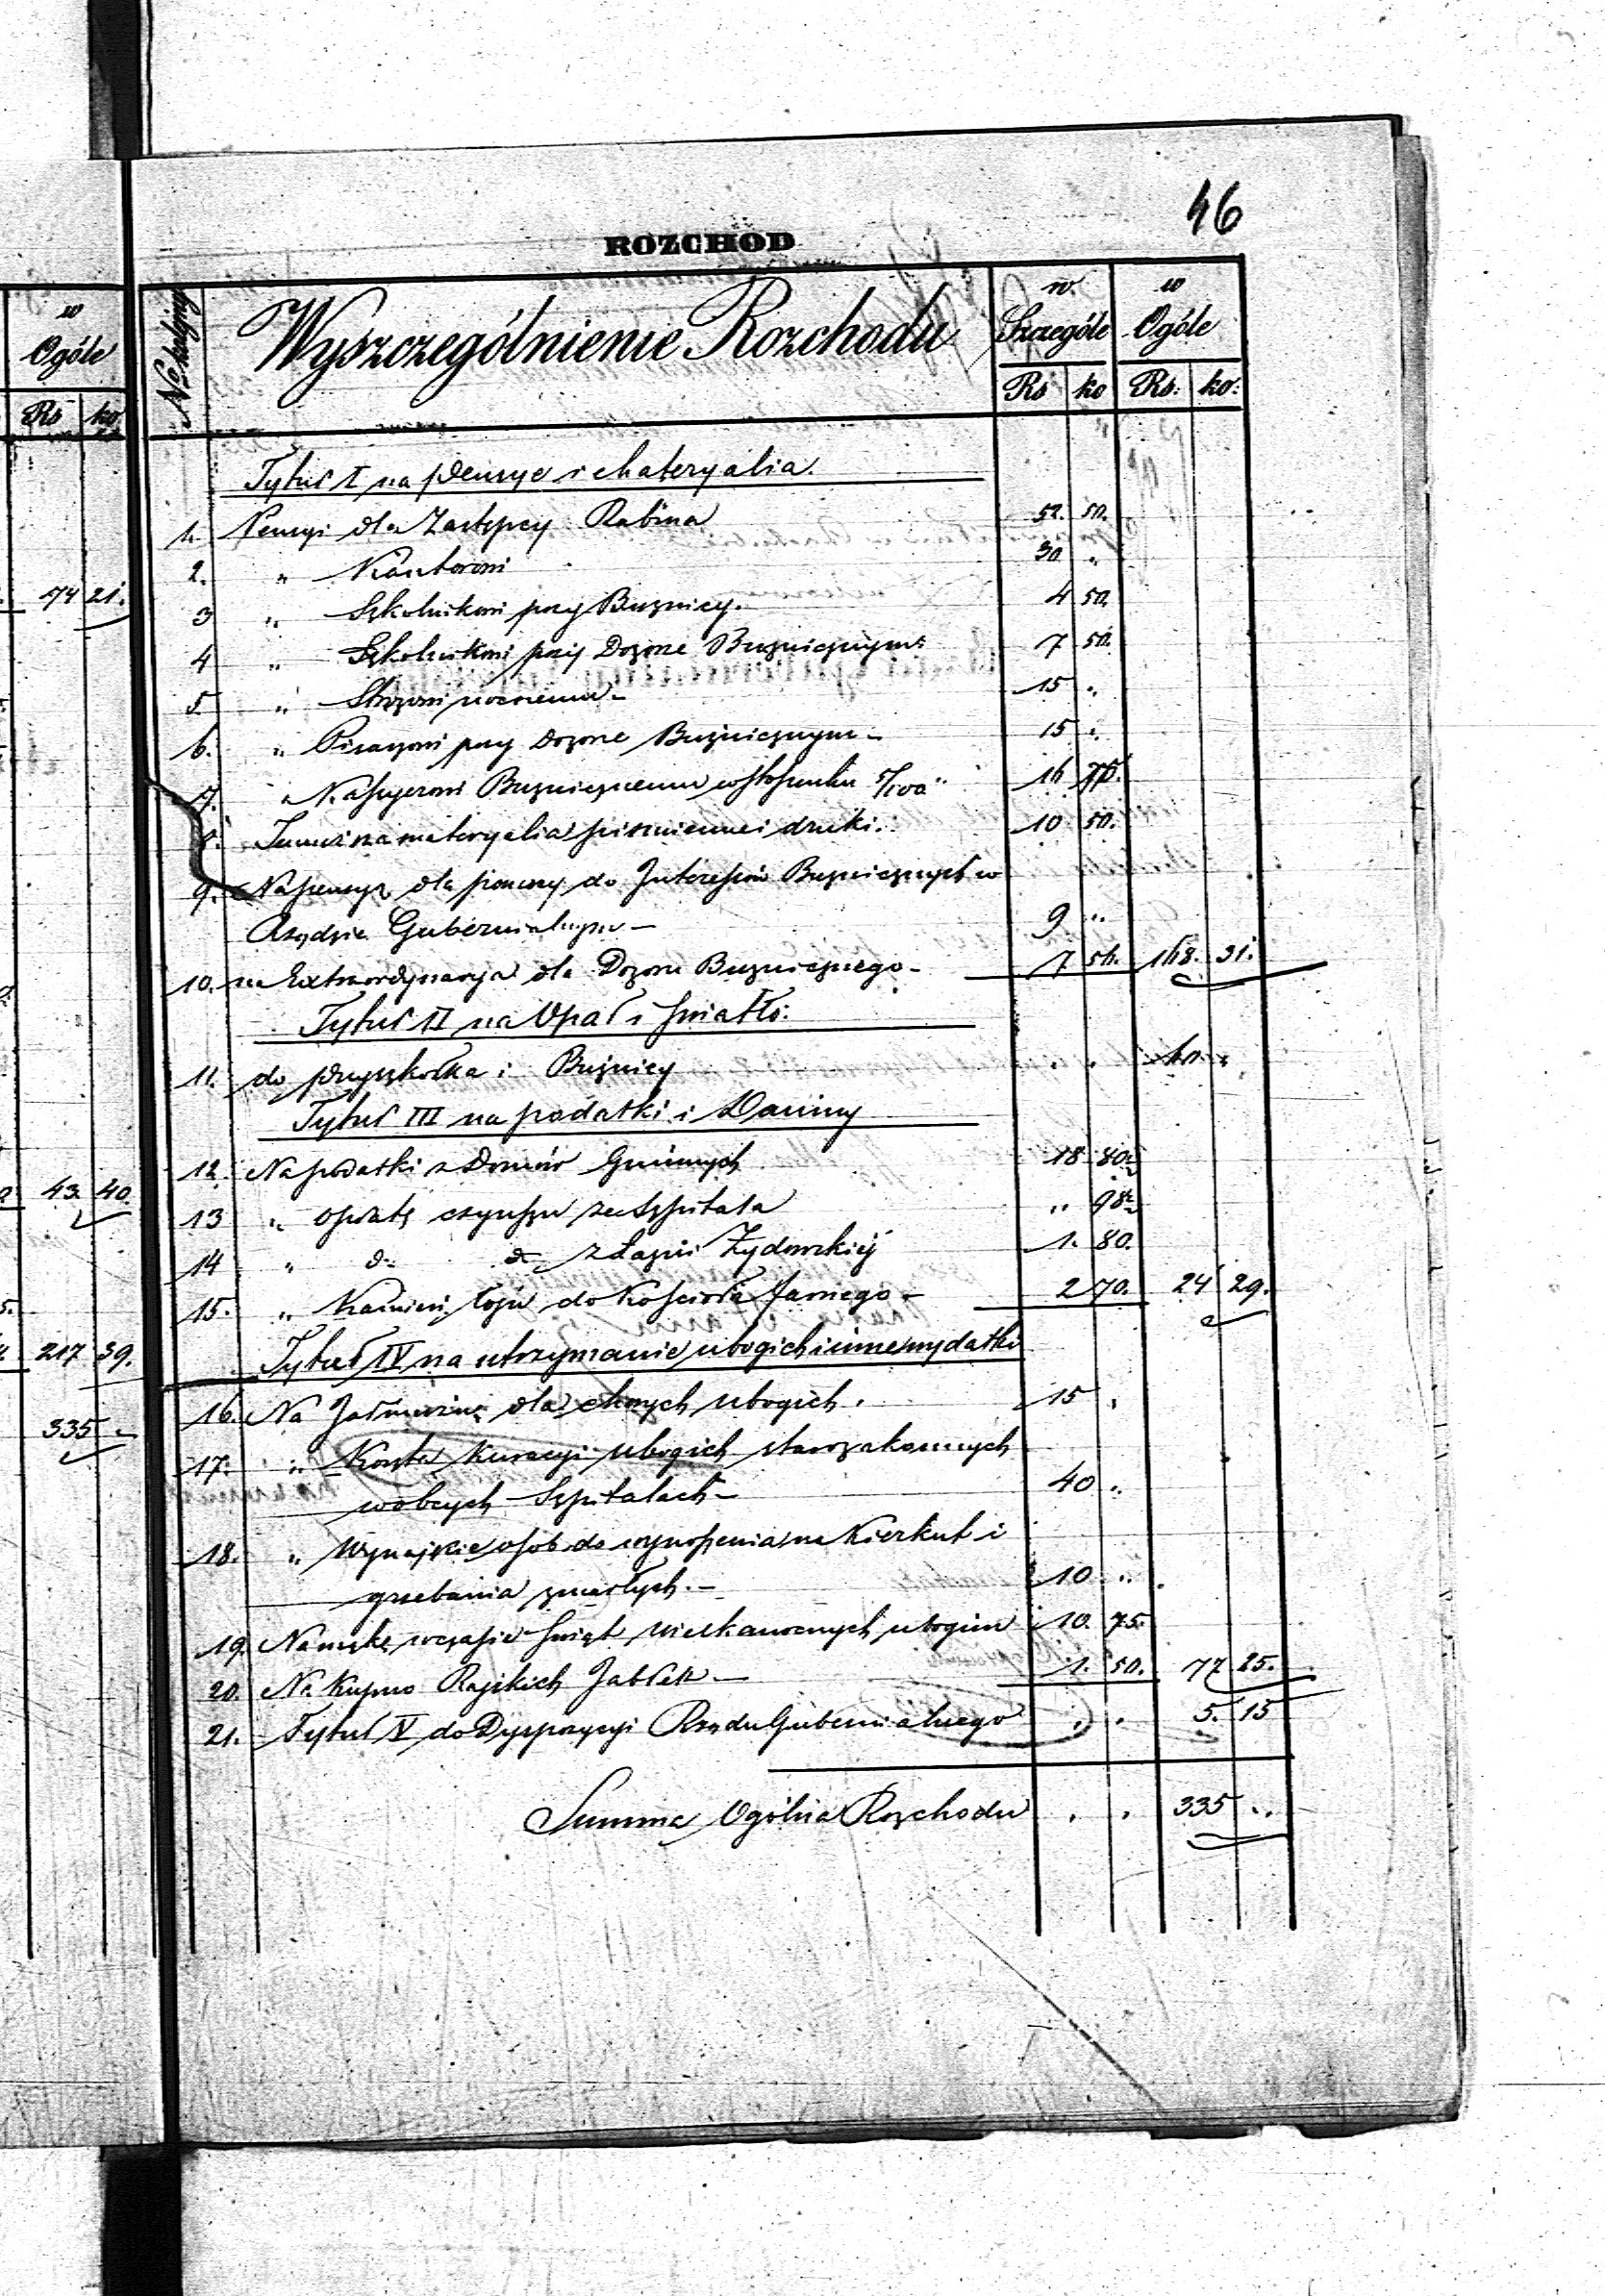 46
ROZCHÓD
w Ogóle
Rs ko
74 21.
43. 40.
217 39.
335 "
No kolejny Wyszczególnienie Rozchodu w Szczególe w Ogóle
Rs ko Rs. ko.
Tytuł I na pensye i materyalia.
1. Pensyi dla Zastępcy Rabina 52. 50.
2. " Kantorowi 30 "
3 " Szkolnikowi przy Bużnicy. 4 50.
4 " Szkolnikowi przy Dozorze Bużnicznym 7 50.
5 " Stróżowi nocnemu 15 "
6. " Pisarzowi przy Dozorze Bużnicznym 15 "
7. " Kassyerowi Bużnicznemu w stosunku 5/100 16 75.
8. materyalia piśmienne i druki. 10 50.
9. Na pensyę dla do Interessów Bużnicznych w
Rządzie Gubernialnym 9 "
10. na Extraordynarya dla Dozoru Bużnicznego 7 56. 168. 31.
Tytuł II na Opał i światło.
11. do przyszkołka i Bużnicy " " 60. "
Tytuł III na podatki i Daniny
12. Na podatki z Domów Gminnych 18 80½
13 " opłatę czynszu ze Szpitala " 98½
14 " d° d° z Łaźni Żydowskiej 1. 80.
15. " Kamień łoju do Kościoła farnego 2 70. 24 29.
Tytuł IV na utrzymanie ubogich i inne wydatki
16. Na Jałmużnę dla chorych ubogich. 15 "
17. " Koszta Kuracyi ubogich starozakonnych
w obcych Szpitalach 40 "
18. " Wynajęcie osób do wynoszenia na Kierkut i
grzebania zmarłych. 10 "
19. Na mąkę w czasie Świąt Wielkanocnych ubogim 10. 75.
20. Na Kupno Rajskich Jabłek 1. 50. 77 25.
21. Tytuł V do Dyspozycyi Rządu Gubernialnego " " 5. 15
Summa Ogólna Rozchodu " " 335 "